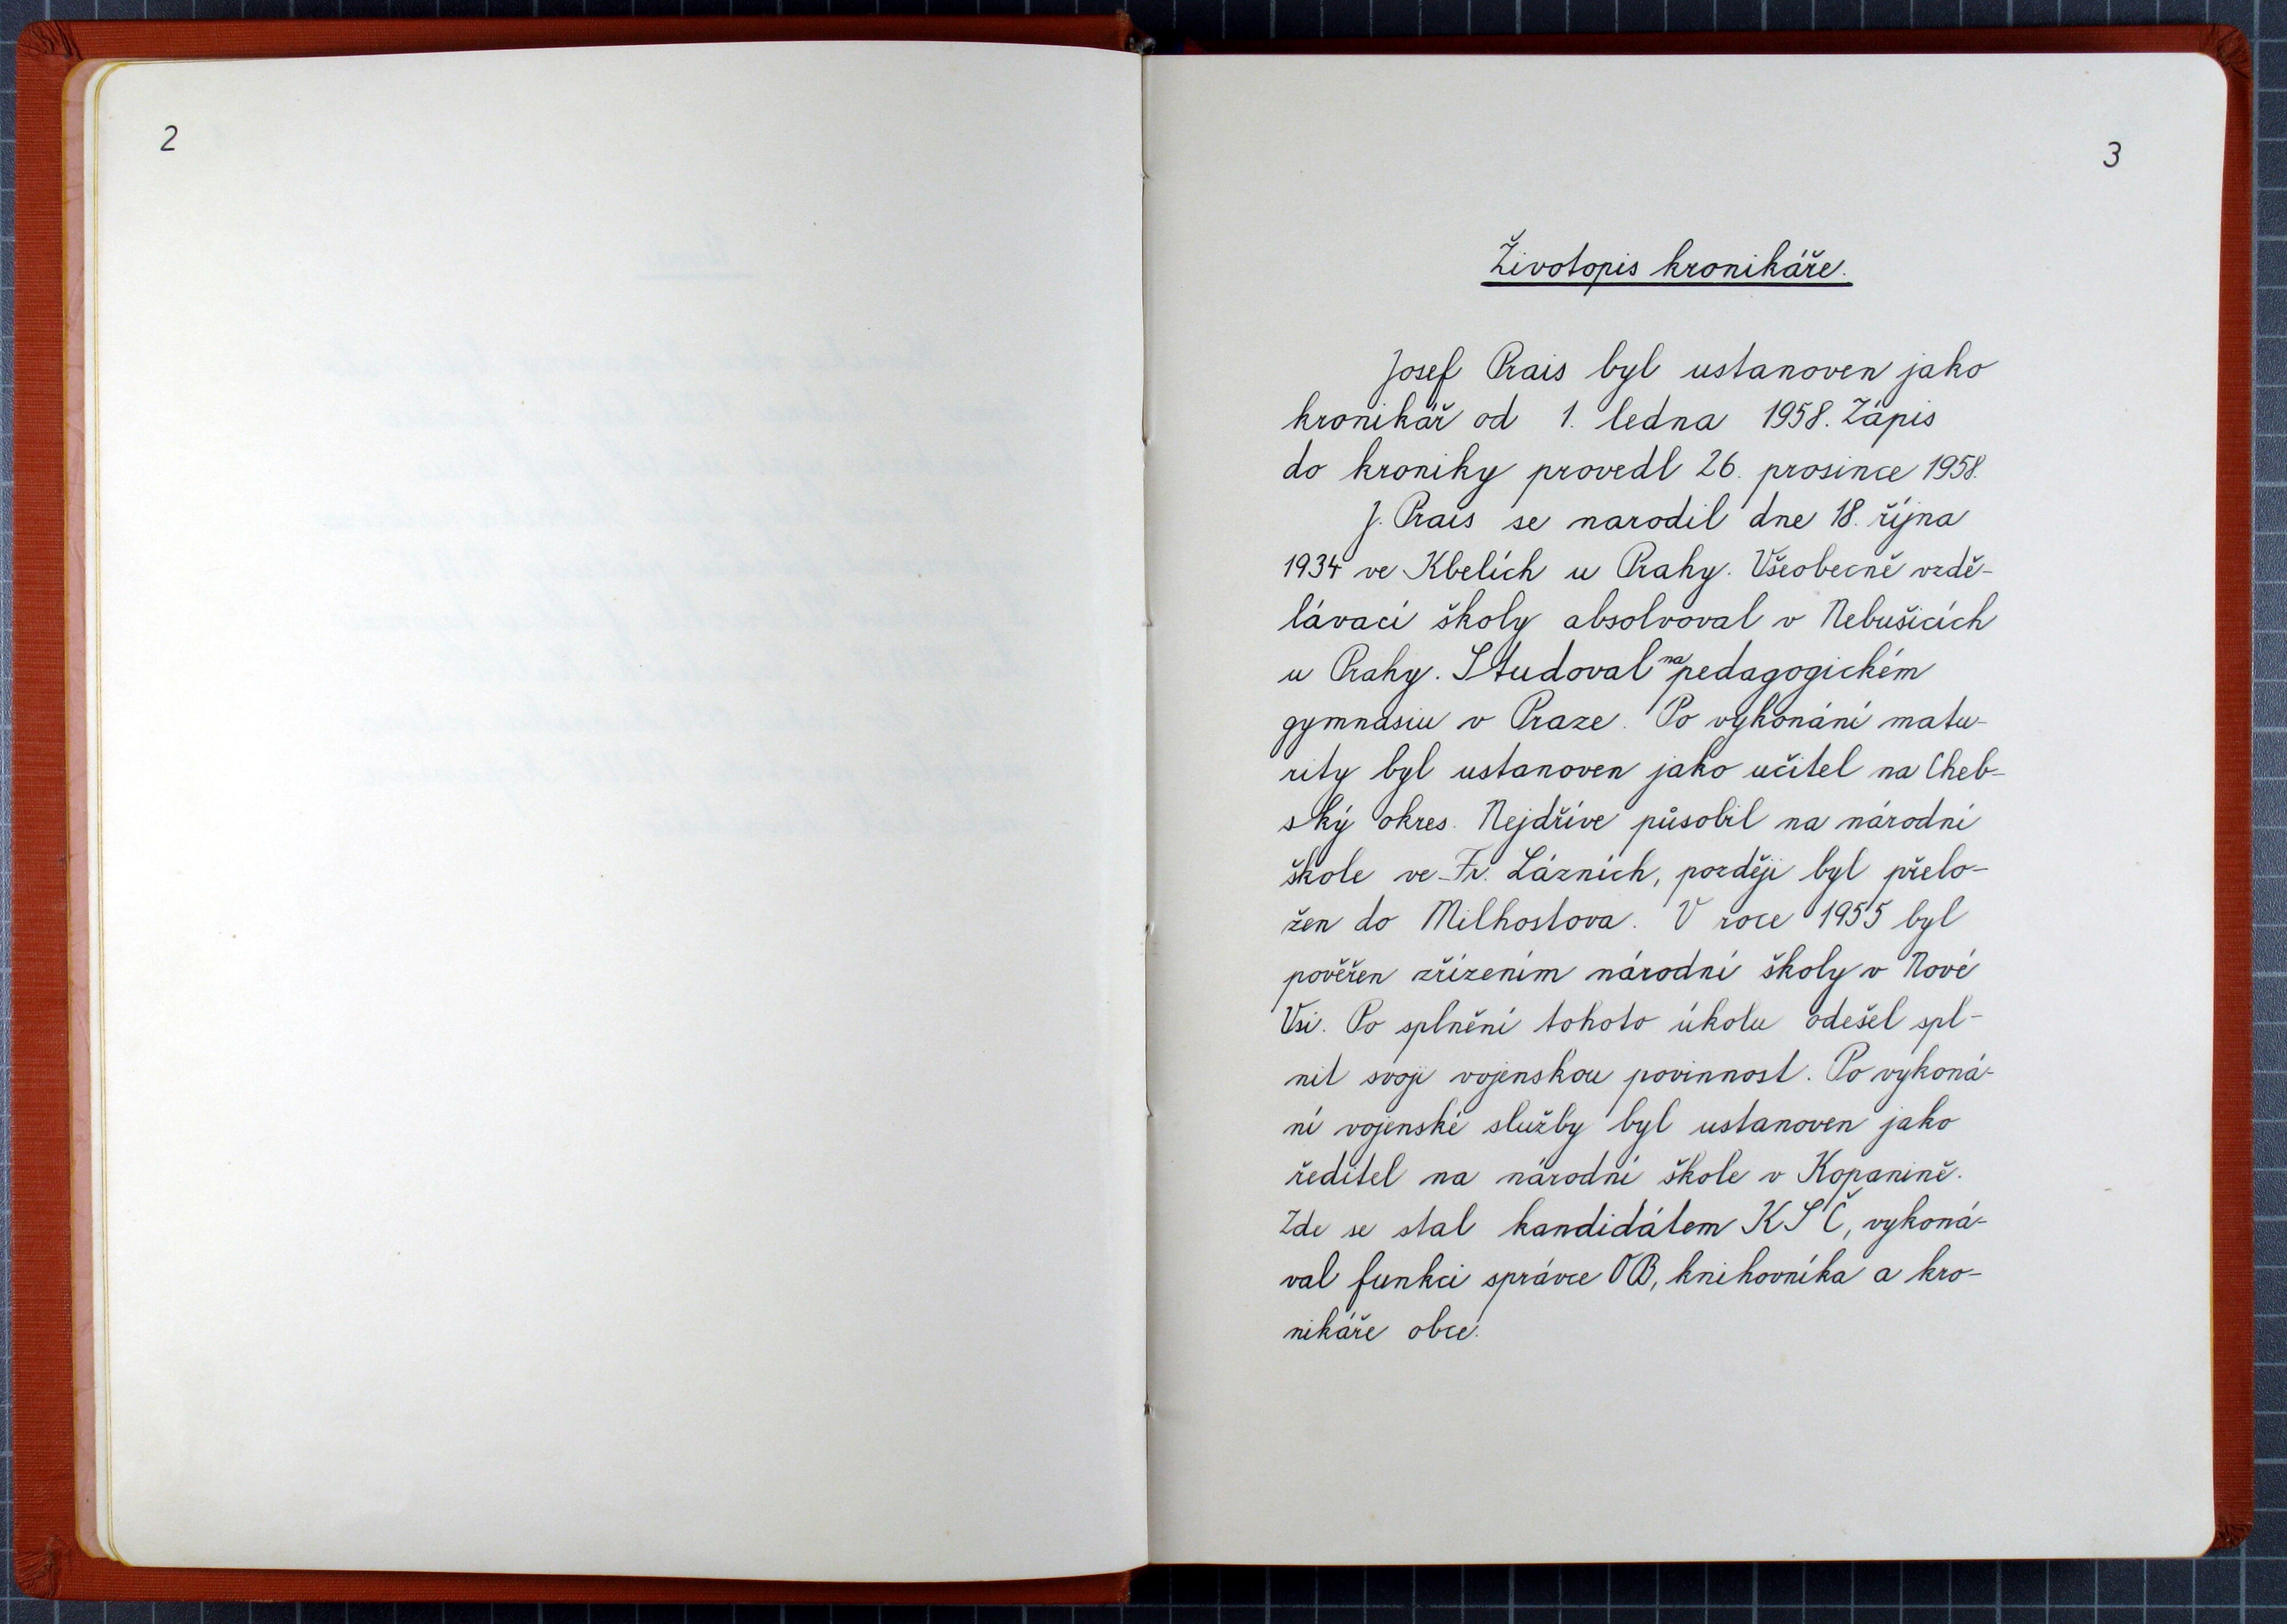 2
3
Životopis kronikáře.
Josef Prais byl ustanoven jako
kronikář od 1. ledna 1958. Zápis
do kroniky provedl 26. prosince 1958.
J. Prais se narodil dne 18. října
1934 ve Kbelích u Prahy. Všeobecně vzdě-
lávací školy absolvoval v Nebušicích
u Prahy. Studoval na pedagogickém
gymnasiu v Praze. Po vykonání matu-
rity byl ustanoven jako učitel na Cheb-
ský okres. Nejdříve působil na národní
škole ve Fr. Lázních, později byl přelo-
žen do Milhostova. V roce 1955 byl
pověřen zřízením národní školy v Nové
Vsi. Po splnění tohoto úkolu odešel spl-
nit svoji vojenskou povinnost. Po vykoná-
ní vojenské služby byl ustanoven jako
ředitel na národní škole v Kopanině.
Zde se stal kandidátem KSČ, vykoná-
val funkci správce OB, knihovníka a kro-
nikáře obce.